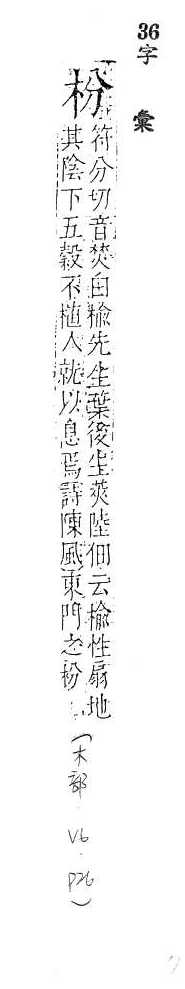 36字 彙
枌
符分切音焚白榆先生葉後生莢陸佃云榆性扇地
其陰下五穀不植人就以息焉詩陳風東門之枌
(木部 V6. P26)